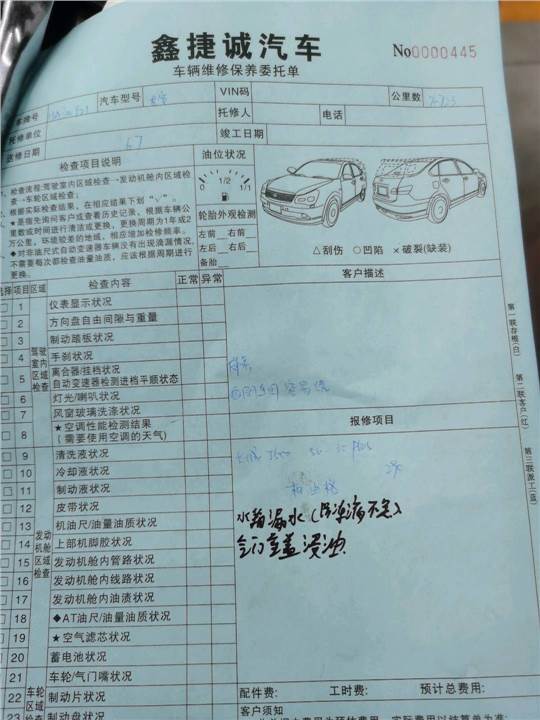 鑫捷诚汽车 No0000445
车辆维修保养委托单
车牌号 汽车型号 VIN码 公里数
托修单位 托修人 电话
送修日期 6.7 竣工日期
检查项目说明 油位状况
检查流程:驾驶室内区域检查→发动机舱内区域检
查→车轮区域检查;
根据实际检查结果,在相应结果下划“√”。
★是指先询问客户或查看历史记录,根据车辆公
里数或时间进行清洁或更换,更换周期为1年或2
万公里,环境较差的地域,相应增加检修频率。
◆对非油尺式自动变速器车辆没有出现滴漏情况,
不需要每次都检查油量油质,应该根据周期进行
更换。
0 1/2 1
1/1
轮胎外观检测
左前 右前
左后 右后
备胎
△刮伤 ○凹陷 ×破裂(缺装)
选择 项目 区域 检查内容 正常 异常 客户描述
驾驶室内区域检查
1 仪表显示状况
2 方向盘自由间隙与重量
3 制动踏板状况
4 手刹状况
5 离合器/挂档状况
自动变速器检测进档平顺状态
6 灯光/喇叭状况
7 风窗玻璃洗涤状况
8 ★空调性能检测结果
(需要使用空调的天气)
报修项目
发动机舱区域检查
9 清洗液状况
10 冷却液状况
11 制动液状况
12 皮带状况
13 机油尺/油量油质状况
14 上部机脚胶状况
15 发动机舱内管路状况
16 发动机舱内线路状况
17 发动机舱内油渍状况
18 ◆AT油尺/油量油质状况
19 ★空气滤芯状况
20 蓄电池状况
水箱漏水(冷冻液不足)
气门室盖浸油
车轮区域检查
21 车轮/气门嘴状况
22 制动片状况
23 制动盘状况
配件费: 工时费: 预计总费用:
客户须知
第一联存根(白)
第二联客户(红)
第三联派工(蓝)